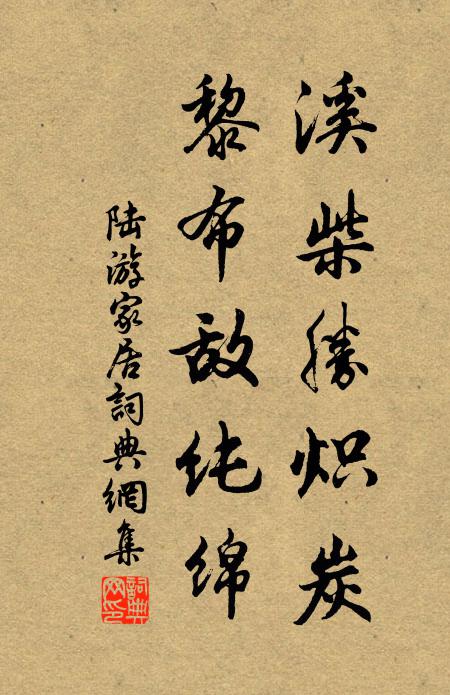 溪柴勝炽炭
黎布敌纯绵
陆游家居詞典網集
詞典網印